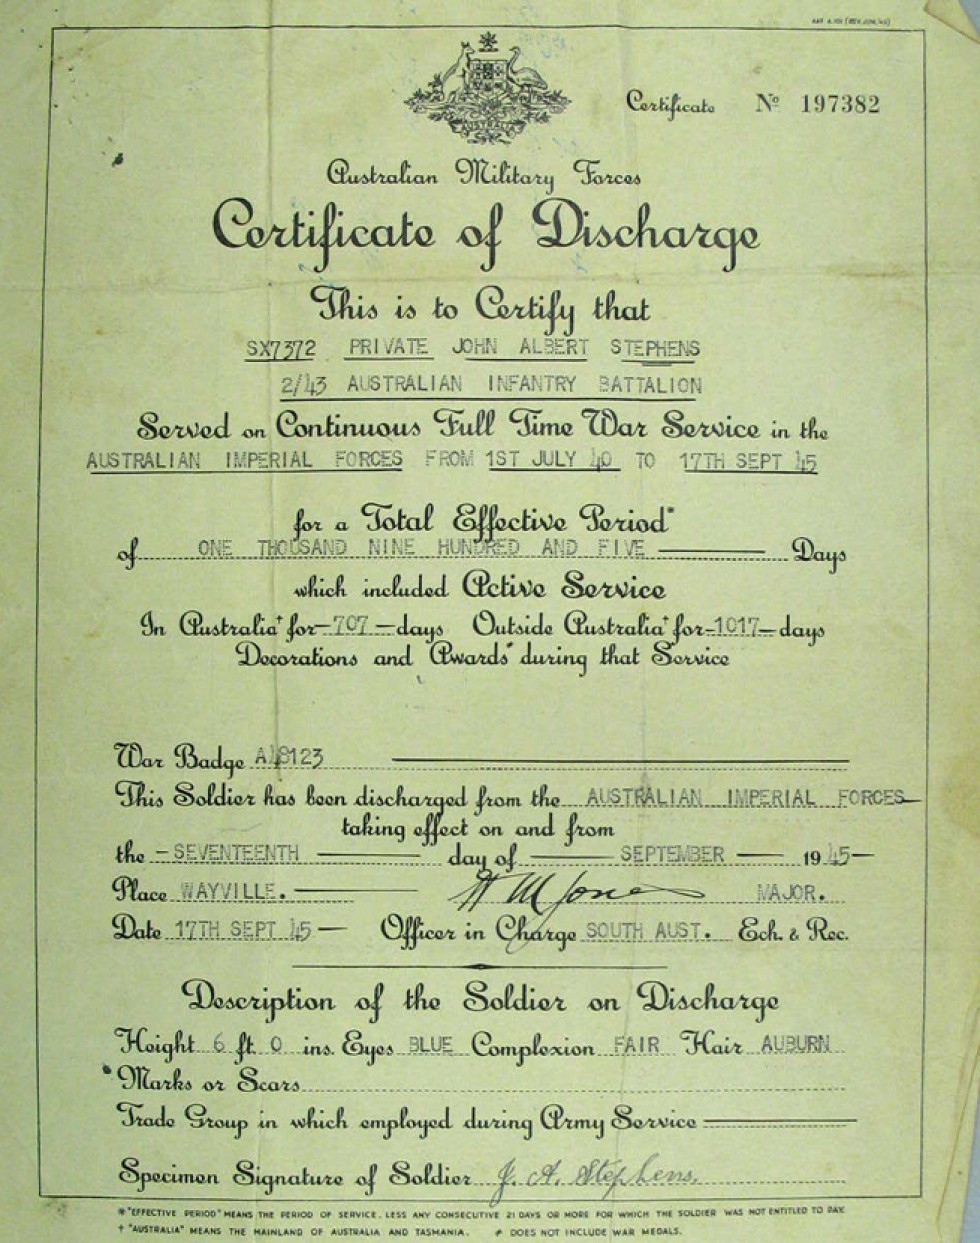 AAF A.101 (REV. JUN. '45)
AUSTRALIA
Certificate № 197382
Australian Military Forces
Certificate of Discharge
This is to Certify that
SX7372 PRIVATE JOHN ALBERT STEPHENS
2/43 AUSTRALIAN INFANTRY BATTALION
Served on Continuous Full Time War Service in the
AUSTRALIAN IMPERIAL FORCES FROM 1ST JULY 40 TO 17TH SEPT 45
for a Total Effective Period*
of ONE THOUSAND NINE HUNDRED AND FIVE Days
which included Active Service
In Australia† for -707- days Outside Australia† for -1017- days
Decorations and Awards≠ during that Service
War Badge A48123
This Soldier has been discharged from the AUSTRALIAN IMPERIAL FORCES
taking effect on and from
the -SEVENTEENTH day of SEPTEMBER 1945-
Place WAYVILLE. H M Jones MAJOR.
Date 17TH SEPT 45- Officer in Charge SOUTH AUST. Ech. & Rec.
Description of the Soldier on Discharge
Height 6 ft. 0 ins. Eyes BLUE Complexion FAIR Hair AUBURN
Marks or Scars
Trade Group in which employed during Army Service
Specimen Signature of Soldier J. A. Stephens.
* "EFFECTIVE PERIOD" MEANS THE PERIOD OF SERVICE, LESS ANY CONSECUTIVE 21 DAYS OR MORE FOR WHICH THE SOLDIER WAS NOT ENTITLED TO PAY.
† "AUSTRALIA" MEANS THE MAINLAND OF AUSTRALIA AND TASMANIA. ≠ DOES NOT INCLUDE WAR MEDALS.